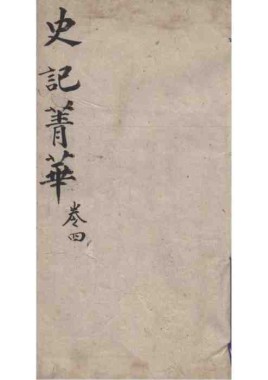 史記菁華
卷四